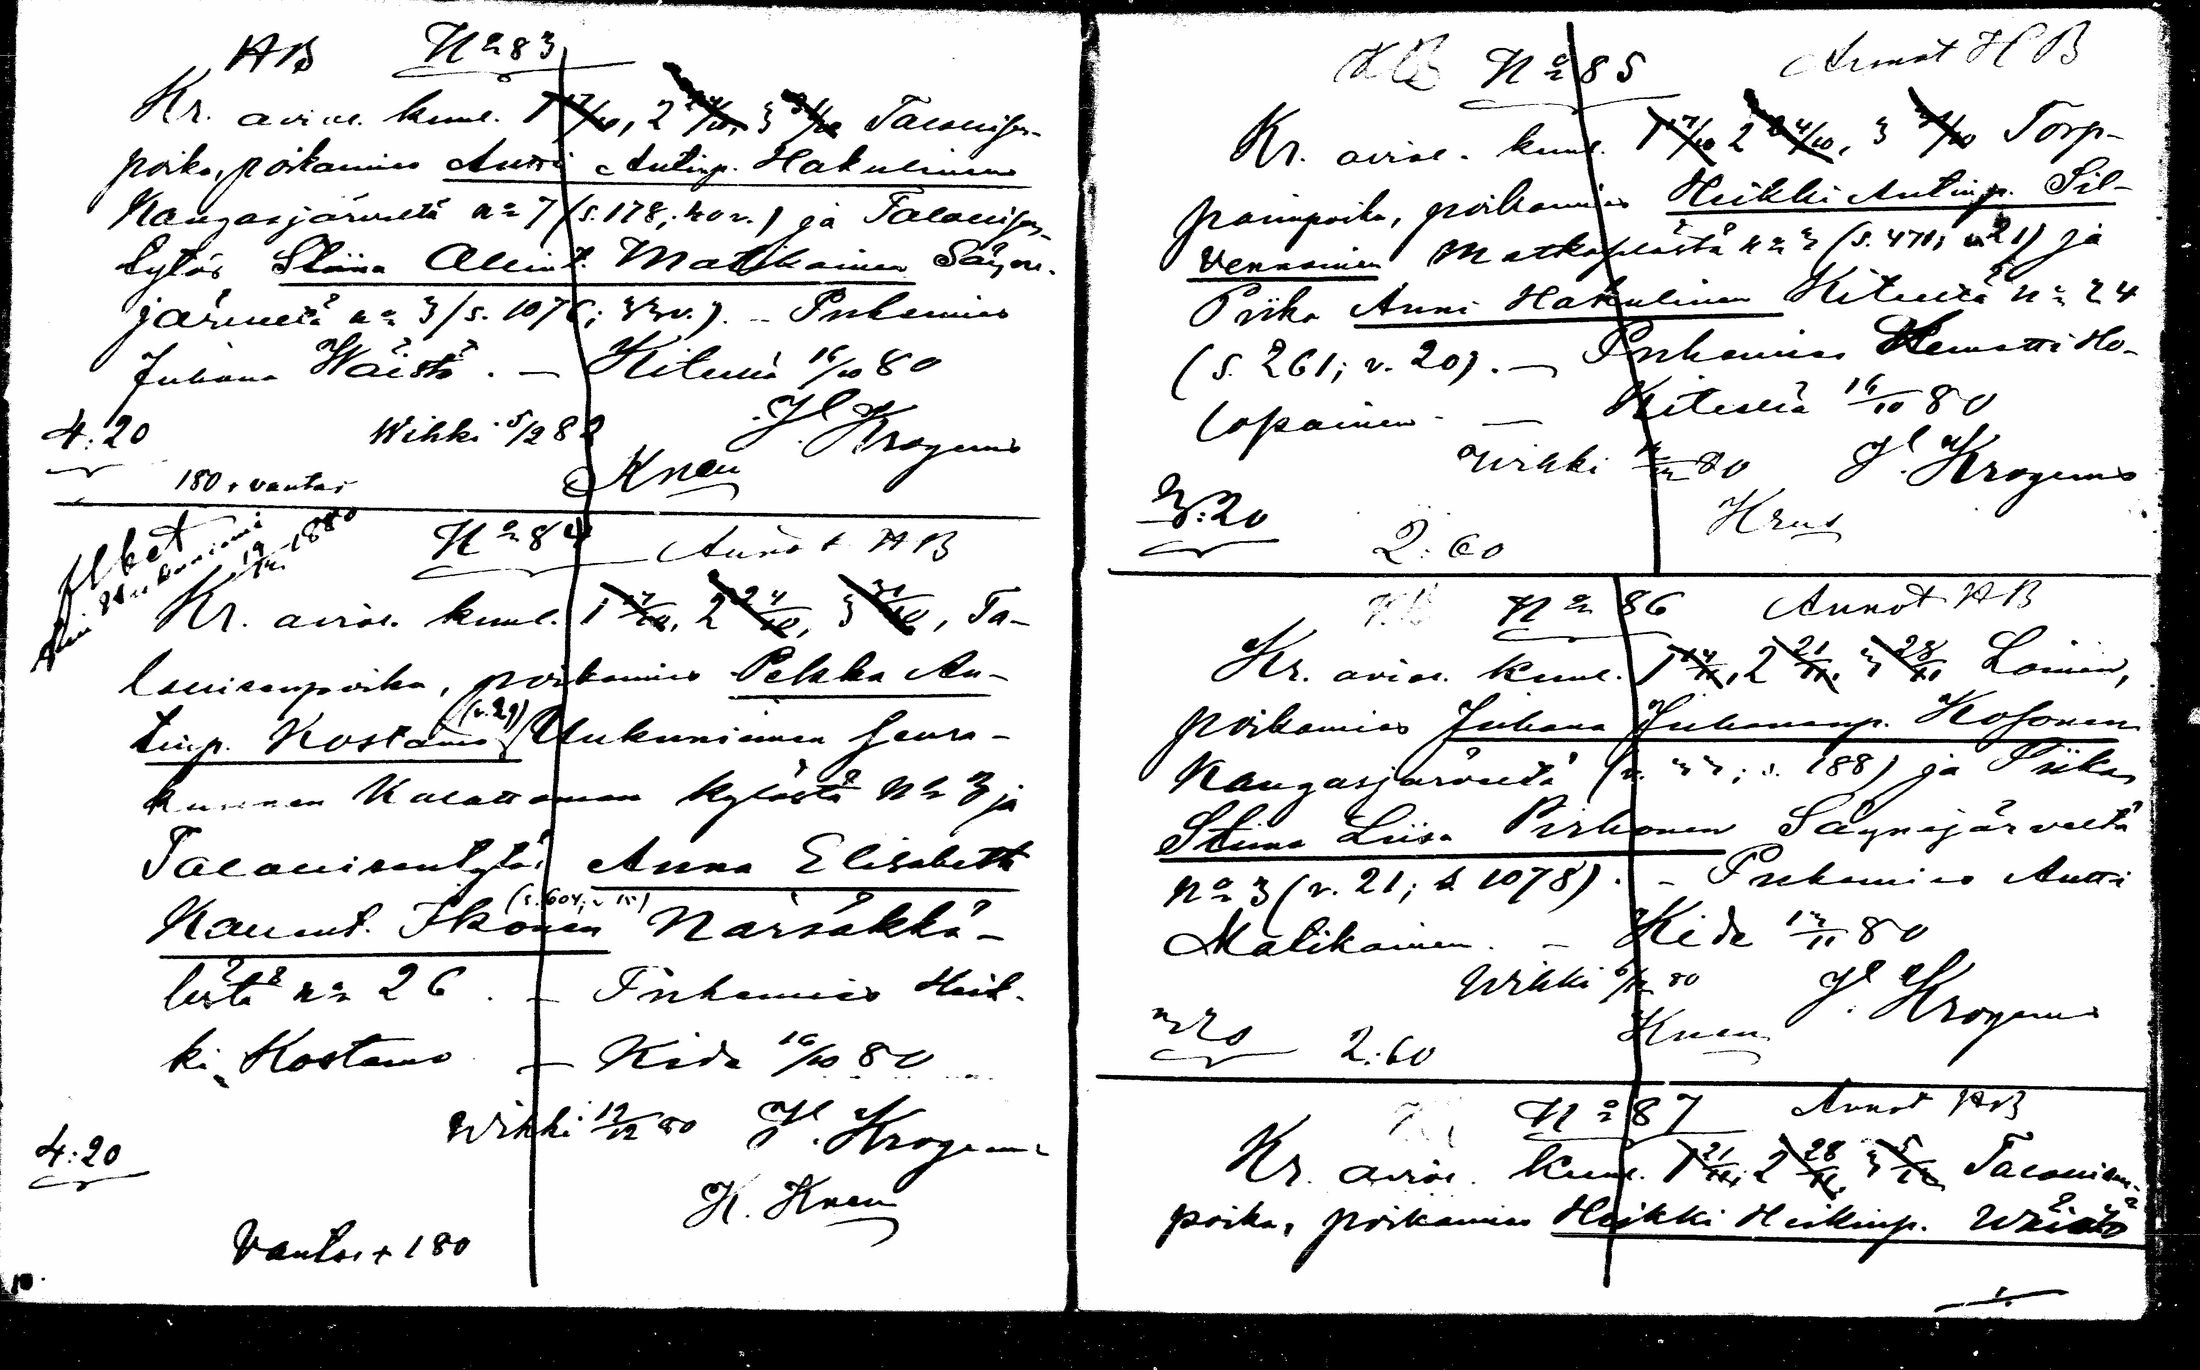 HB No 83
Kr. aviol. kuul. 1 17/10, 2 24/10, 3 31/10 Talonisen-
poika, poikamies Antti Antinp. Hakulinen
Kangasjärveltä no 7 (s. 178; 20 v.) ja Talonisen-
tytär Stiina Allint. Matikainen Säyne-
järveltä no 3 (s. 1076; v.). – Puhemies
Juhana Wäistö. – Kiteellä 16/10 80
4:20 Wihki 5/12 82 H. Krogerus
180 + vantas Knen
No 84 Annot HB
Kr. aviol. kuul. 1 17/10, 2 24/10, 3 31/10, Ta-
lonisenpoika, poikamies Pekka An-
tinp. Kostamo (v. 29) Uukuniemen seura-
kunnan Kalattoman kylästä No 3 ja
Talonisentytär Anna Elisabeth
Ikonen Närsäkkä-
lästä no 26. – Puhemies Heik-
ki Kostamo – Kide 16/10 80
Wihki 19/12 80 H. Krogerus
4:20
K. Knen
Vantas + 180
No 85 Annot HB
Kr. aviol. kuul. 1 17/10 2 24/10, 3 31/10 Torp-
parinpoika, poikamies Heikki Antinp. Sil-
vennoinen Matkaselästä no 3 (s. 471; v. 21) ja
Piika Anni Hakulinen Kiteeltä no 24
(s. 261; v. 20). – Puhemies Klemetti Ho-
lopainen – Kiteellä 16/10 80
Wihki 80 H. Krogerus
3:20 2:60
No 86 Annot HB
Kr. aviol. kuul. 1 14/11, 2 21/11, 3 28/11 Loinen,
poikamies Juhana Juhananp. Kosonen
Kangasjärveltä (s. 188) ja Piika
Stiina Liisa Pirhonen Säynejärveltä
no 3 (v. 21; s. 1078). – Puhemies Antti
Matikainen. – Kide 80
Wihki 6/12 80 H. Krogerus
3 20 2:60 Knen
No 87 Annot HB
Kr. aviol. kuul. 1 21/11, 2 28/11, 3 5/12 Talonisen-
poika, poikamies Heikki Heikinp. Wäistö